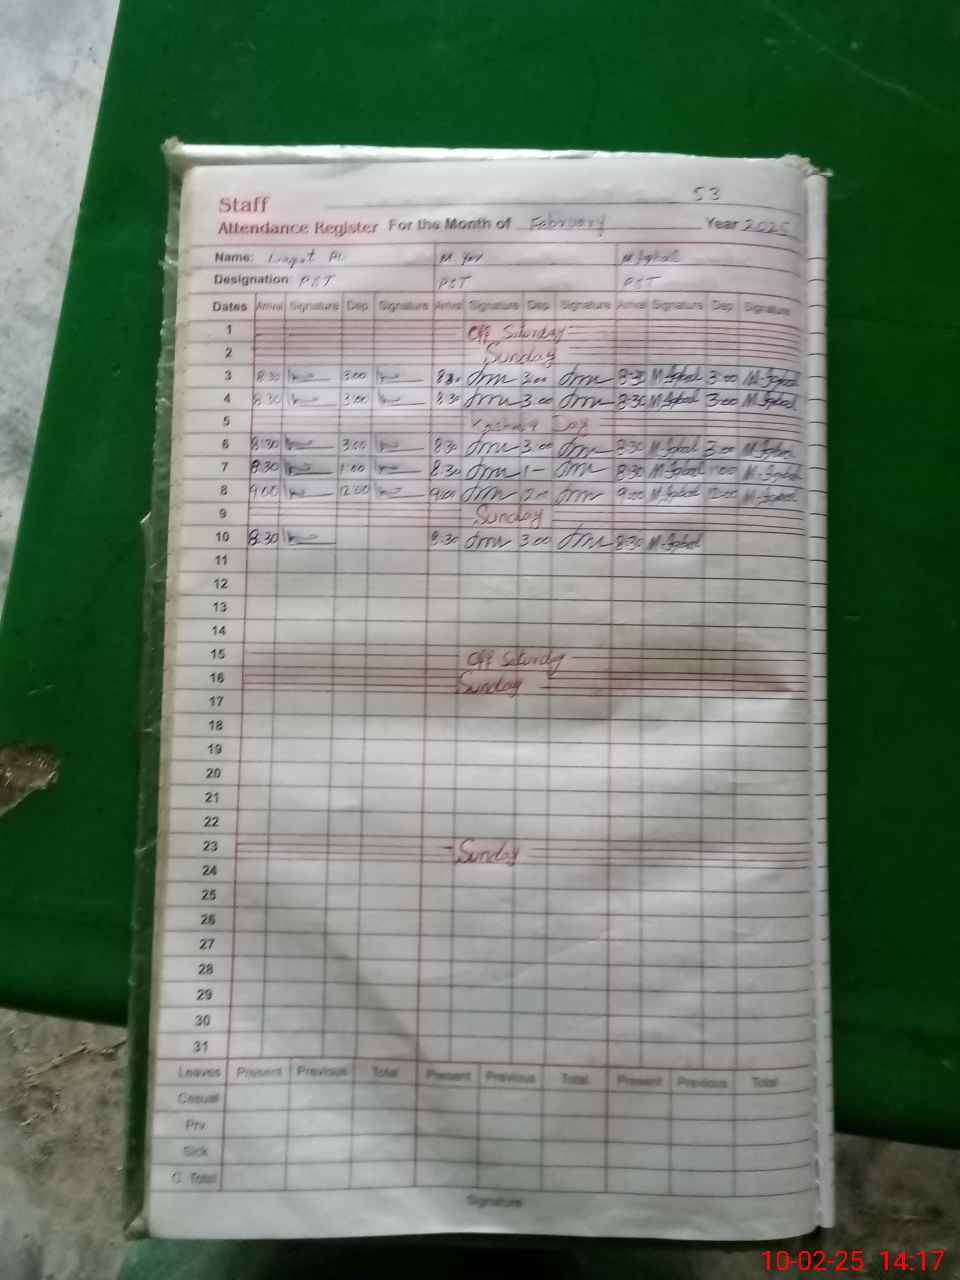 53
Staff
Attendance Register For the Month of February Year 2025
Name: Ali M. Yar M Iqbal
Designation: PST PST PST
Dates Arrival Signature Dep Signature Arrival Signature Dep Signature Arrival Signature Dep Signature
1 Off Saturday
2 Sunday
3 8:30 3:00 8:30 3:00 8:30 M.Iqbal 3:00 M.Iqbal
4 8:30 3:00 8:30 3:00 8:30 M.Iqbal 3:00 M.Iqbal
5 Kashmir Day
6 8:30 3:00 8:30 3:00 8:30 M.Iqbal 3:00 M.Iqbal
7 8:30 1:00 8:30 1- 8:30 M.Iqbal 1:00 M.Iqbal
8 9:00 12:00 9:00 12:00 9:00 M.Iqbal 12:00 M.Iqbal
9 Sunday
10 8:30 8:30 3:00 8:30 M.Iqbal
11
12
13
14
15 Off Saturday
16 Sunday
17
18
19
20
21
22
23 Sunday
24
25
26
27
28
29
30
31
Leaves Present Previous Total Present Previous Total Present Previous Total
Casual
Prv.
Sick
G. Total
Signature
10-02-25 14:17